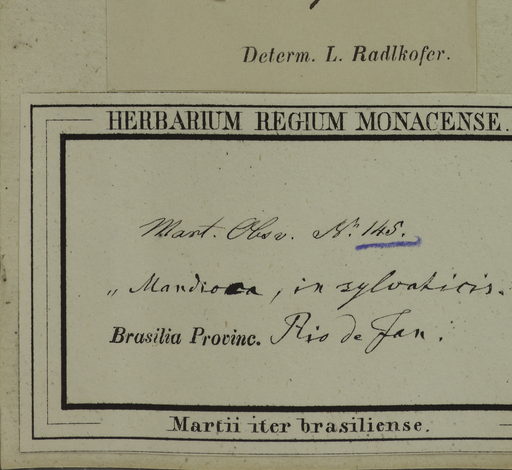 Determ. L. Radlkofer.
HERBARIUM REGIUM MONACENSE.
Mart. Obsv. Nr. 145.
„ Mandiocca, in sylvaticis.
Brasilia Provinc. Rio de Jan.
Martii iter brasiliense.